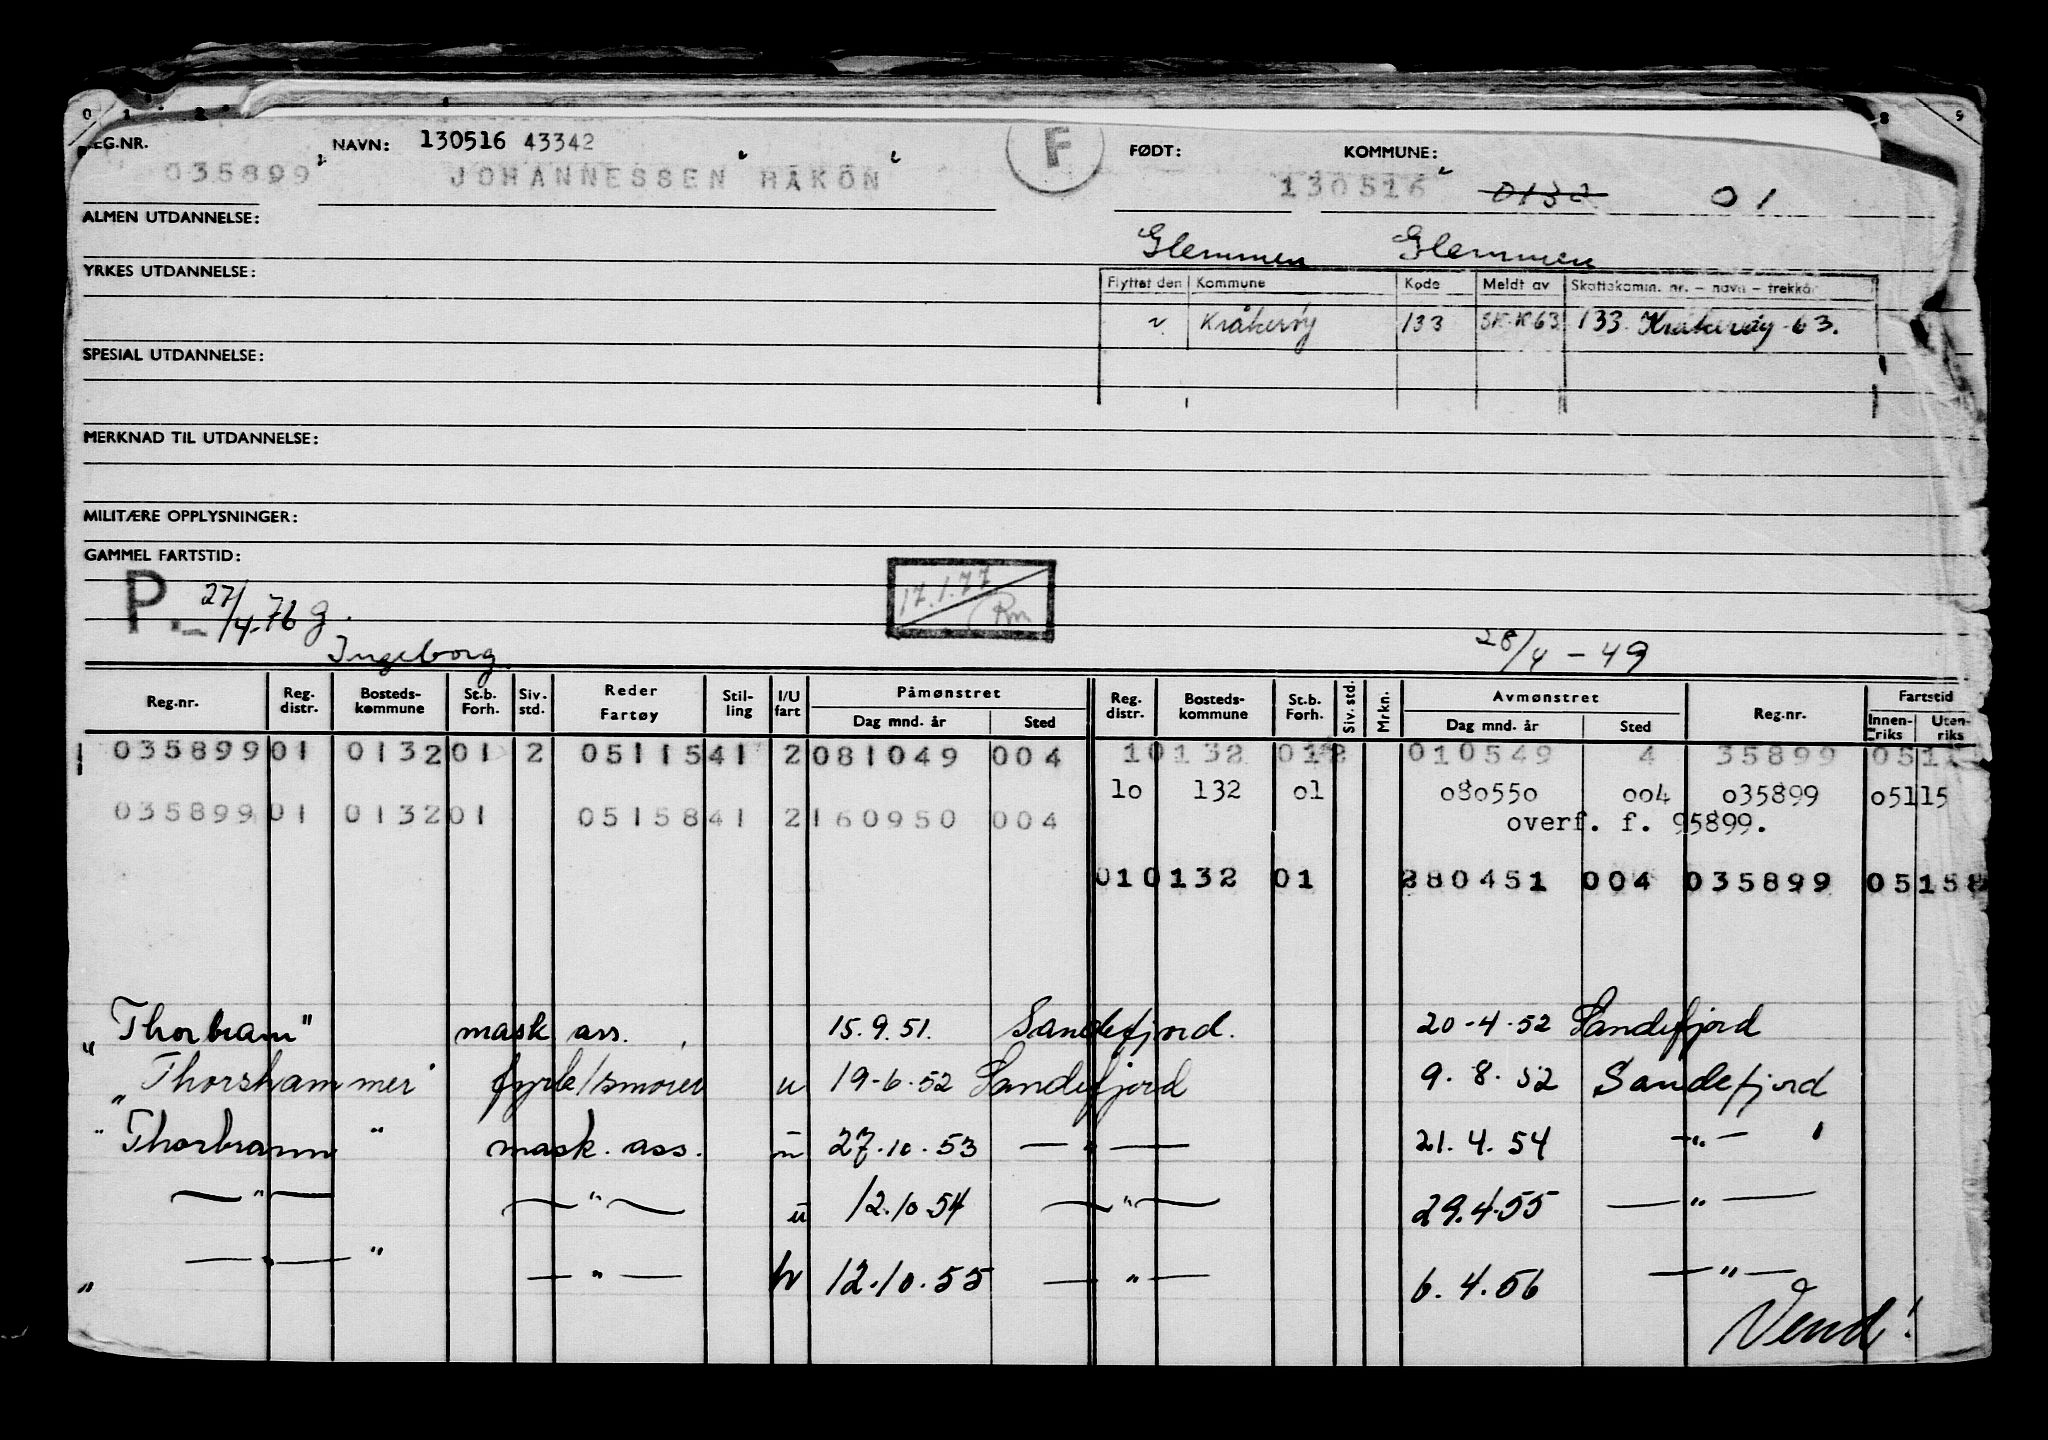 0 1 2 8 9
REG.NR. NAVN: 130516 43342 F FØDT: KOMMUNE:
035899 JOHANNESSEN HÅKON 130516 0132 01
ALMEN UTDANNELSE:
Glemmen Glemmen
YRKES UTDANNELSE:
Flyttet den Kommune Kode Meldt av Skattekomm. nr. – navn – trekkår
Kråkerøy 133 SK.K63 133 Kråkerøy 63.
SPESIAL UTDANNELSE:
MERKNAD TIL UTDANNELSE:
MILITÆRE OPPLYSNINGER:
GAMMEL FARTSTID:
P. 27/4-76 g. 17.1.77 Rm
Ingeborg. 28/4 - 49
Reg.nr. Reg. distr. Bosteds-kommune St.b. Forh. Siv. std. Reder Fartøy Stil-ling I/U fart Påmønstret Dag mnd. år Sted Reg. distr. Bosteds-kommune St.b. Forh. Siv. std. Mrkn. Avmønstret Dag mnd. år Sted Reg.nr. Fartstid Innen-riks Uten-riks
035899 01 0132 01 2 05115 41 2 081049 004 10132 01 2 010549 4 35899 0511
10 132 01 080550 004 035899 05115
035899 01 0132 01 05158 41 2 160950 004 overf. f. 95899.
01 0132 01 280451 004 035899 05158
„Thorbram" mask ass. 15.9.51. Sandefjord. 20-4-52 Sandefjord
„Thorshammer" fyrb/smører u 19-6-52 Sandefjord 9.8.52 Sandefjord
"Thorbrann" mask. ass. u 27.10.53 — " — 21.4.54 — " —
— " — — " — u 12.10.54 — " — 29.4.55 — " —
„ — " — " — " — 12.10.55 — " — 6.4.56 — " —
Vend!